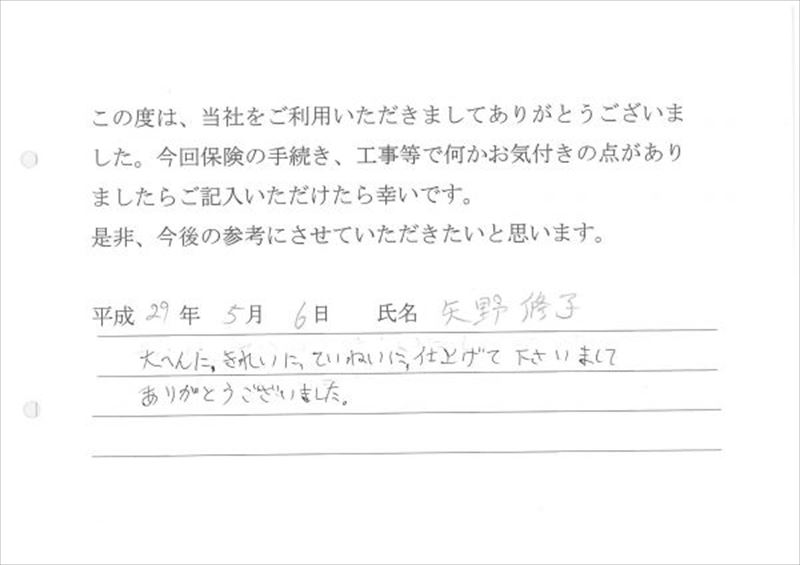 この度は、当社をご利用いただきましてありがとうございま
した。今回保険の手続き、工事等で何かお気付きの点があり
ましたらご記入いただけたら幸いです。
是非、今後の参考にさせていただきたいと思います。
平成 29 年 5月 6日 氏名 矢野修子
大へんに,きれいに,ていねいに,仕上げて下さいまして
ありがとうございました。